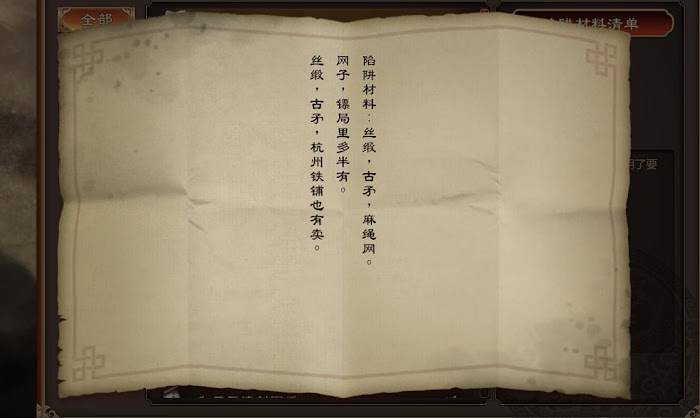 全部
材料清单
陷阱材料：丝缎，古矛，麻绳网。
网子，镖局里多半有。
丝缎，古矛，杭州铁铺也有卖。
了要